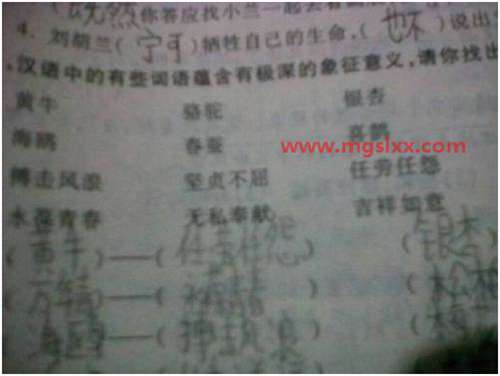 (既然)你答应找小兰一起去看
4.刘胡兰(宁可)牺牲自己的生命,(也不)说出
,汉语中的有些词语蕴含有极深的象征意义,请你找出
黄牛 骆驼 银杏
海鸥 春蚕 喜鹊
www.mgslxx.com
搏击风浪 坚贞不屈 任劳任怨
永葆青春 无私奉献 吉祥如意
(黄牛)——(任劳任怨) (银杏
( )——( ) (松梅
海鸥 搏击风浪 (梅